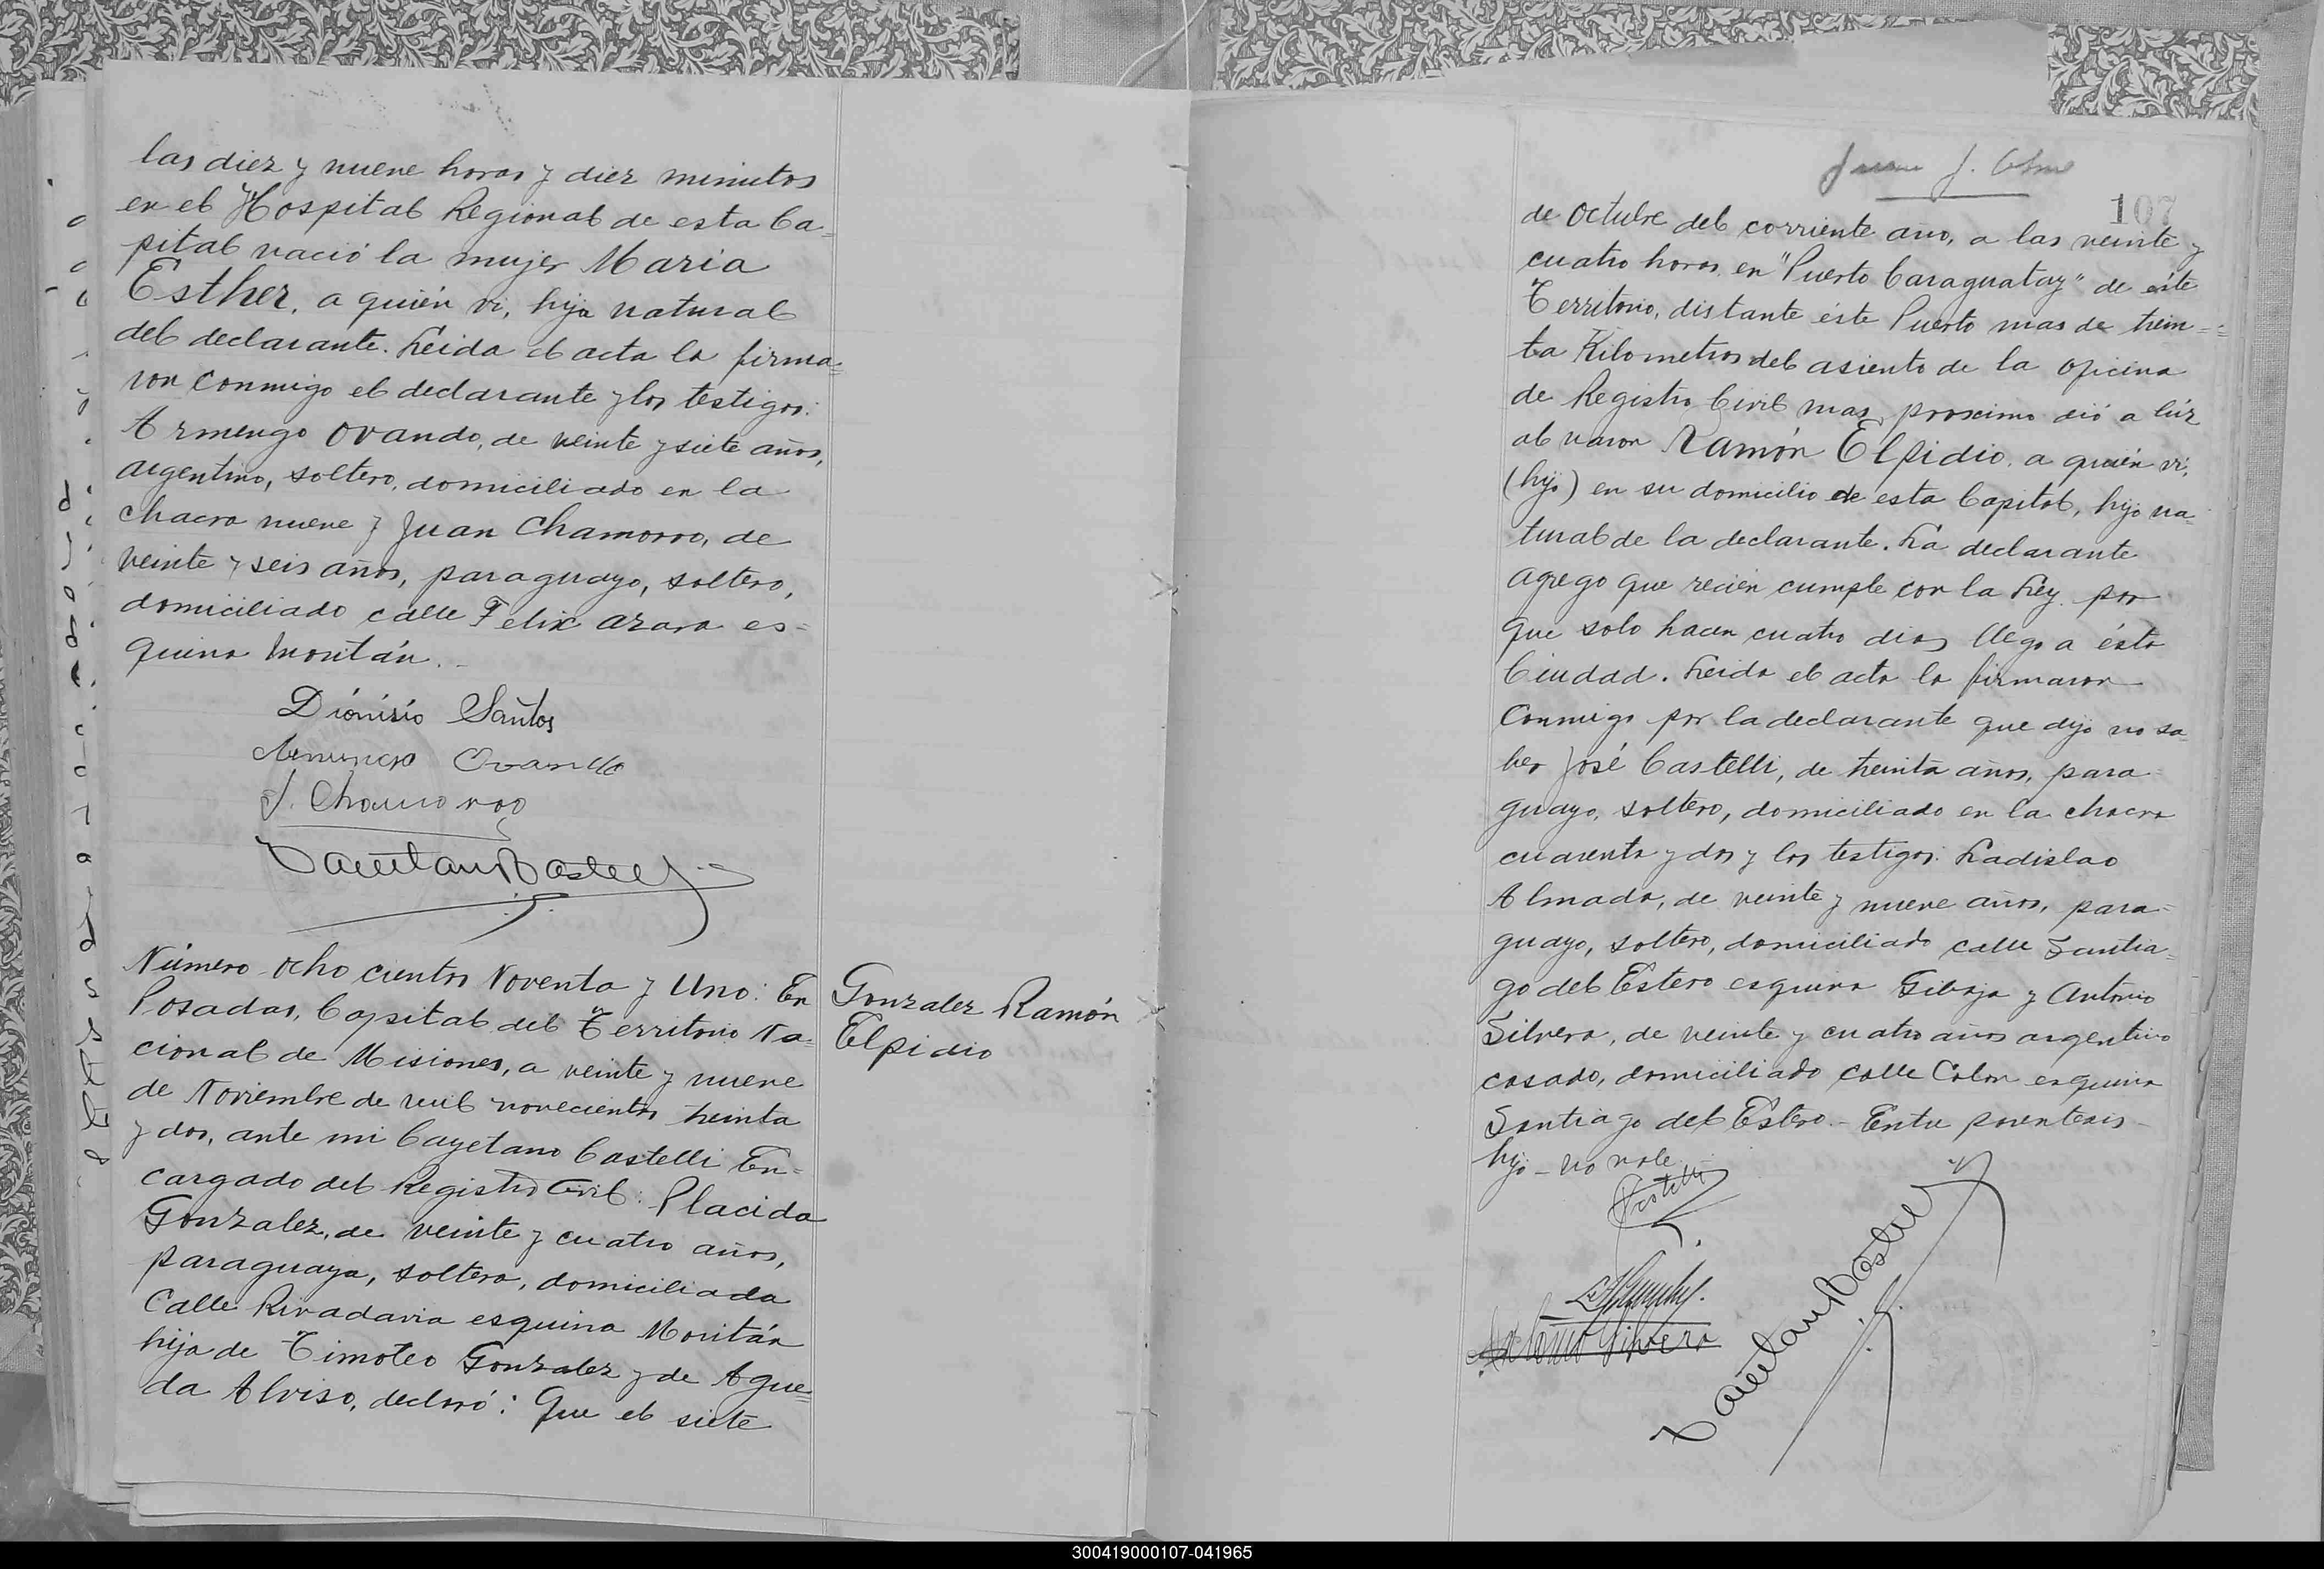 las diez y nueve horas y diez minutos
en el Hospital Regional de esta Ca=
pital nació la mujer Maria
Esther, a quién vi, hija natural
del declarante. Leida el acta la firma=
ron conmigo el declarante y los testigos:
Armengo Ovando, de veinte y siete años,
argentino, soltero, domiciliado en la
chacra nueve y Juan Chamorro, de
veinte y seis años, paraguayo, soltero,
domiciliado calle Felix Azara es-
quina Moritán.-
Dionisio Santos
Ovando
J. Chamorro
Número ocho cientos Noventa y Uno: En
Posadas, Capital del Territorio Na-
cional de Misiones, a veinte y nueve
de Noviembre de mil novecientos treinta
y dos, ante mi Cayetano Castelli En-
cargado del Registro Civil: Placida
Gonzalez, de veinte y cuatro años,
paraguaya, soltera, domiciliada
Calle Rivadavia esquina Moritán
hija de Timoteo Gonzalez y de Ague=
da Alviso, declaró: Que el siete
Gonzalez Ramón
Elpidio
Juan J.
107
de Octubre del corriente año, a las veinte y
cuatro horas en "Puerto Caraguatay" de éste
Territorio, distante éste Puerto mas de trein=
ta Kilometros del asiento de la oficina
de Registro Civil mas proximo dió a lúz
al varon Ramón Elpidio, a quién vi,
(hijo) en su domicilio de esta Capital, hijo na-
tural de la declarante. La declarante
agrego que recien cumple con la Ley por
que solo hacen cuatro dias llego a ésta
Ciudad. Leida el acta la firmaron
Conmigo por la declarante que dijo no sa-
ber José Castelli, de treinta años, para-
guayo, soltero, domiciliado en la chacra
cuarenta y dos y los testigos: Ladislao
Almada, de veinte y nueve años, para-
guayo, soltero, domiciliado calle Santia-
go del Estero esquina Gibaja y Antonio
Silvera, de veinte y cuatro años argentino
casado, domiciliado calle Colon esquina
Santiago del Estero.- Entre parentesis-
hijo - no vale.
Castelli
Antonio Silvera
300419000107-041965